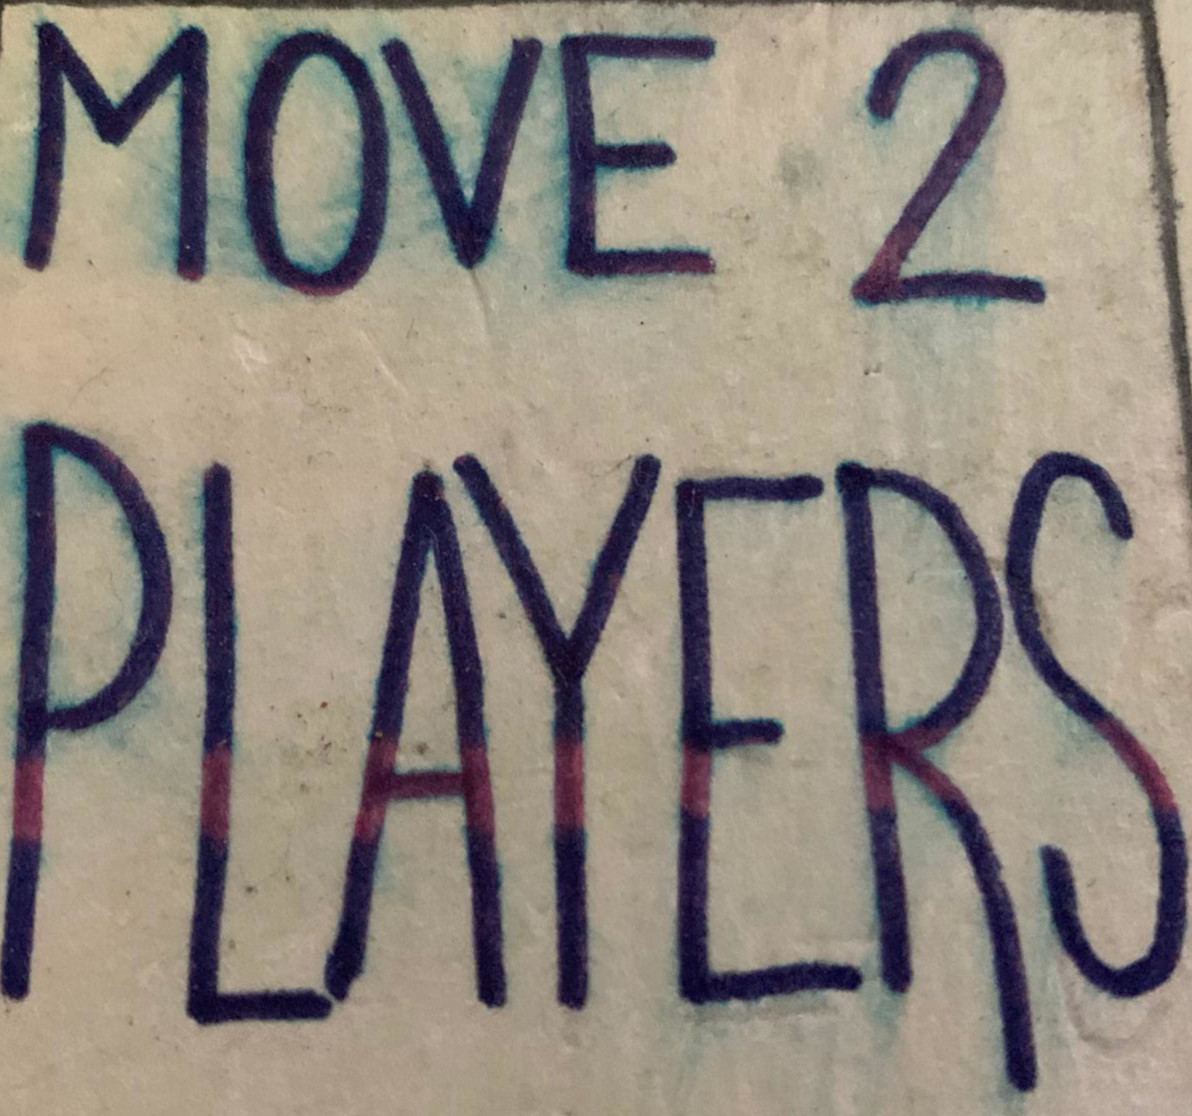 MOVE 2
PLAYERS